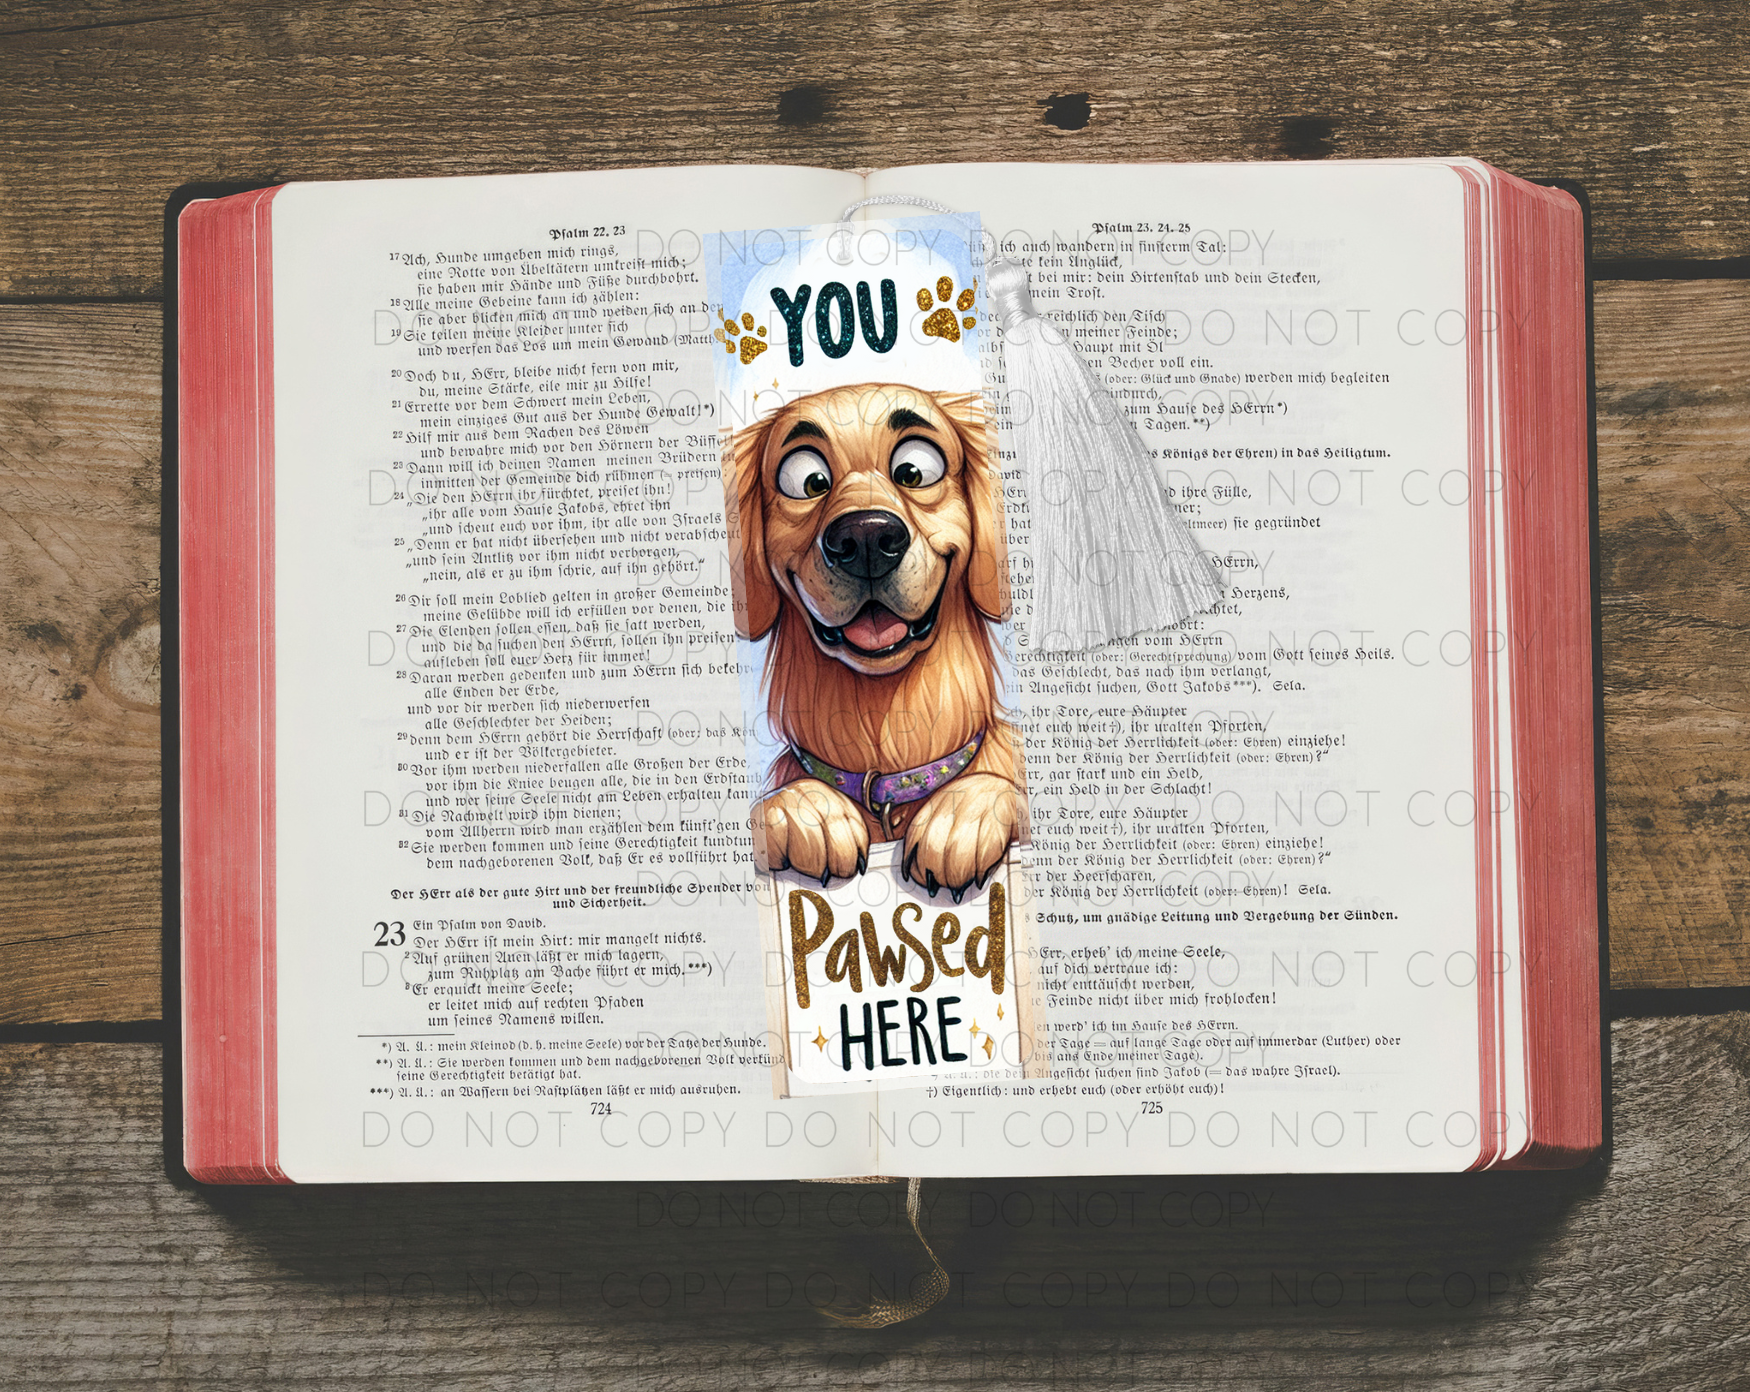 Psalm 22. 23
17 Ach, Hunde umgeben mich rings,
eine Rotte von Übeltätern umkreist mich;
sie haben mir Hände und Füße durchbohrt.
18 Alle meine Gebeine kann ich zählen:
sie aber blicken mich an und weiden sich an
19 Sie teilen meine Kleider unter sich
und werfen das Los um mein Gewand (Matth
20 Doch du, HErr, bleibe nicht fern von mir,
du, meine Stärke, eile mir zu Hilfe!
21 Errette vor dem Schwert mein Leben,
mein einziges Gut aus der Hunde Gewalt!*)
22 Hilf mir aus dem Rachen des Löwen
und bewahre mich vor den Hörnern der Büffel
23 Dann will ich deinen Namen meinen Brüdern
inmitten der Gemeinde dich rühmen (= preisen):
24 „Die den HErrn ihr fürchtet, preiset ihn!
„ihr alle vom Hause Jakobs, ehret ihn
„und scheut euch vor ihm, ihr alle von Israels
25 „Denn er hat nicht übersehen und nicht verabscheut
„und sein Antlitz vor ihm nicht verborgen,
„nein, als er zu ihm schrie, auf ihn gehört.“
26 Dir soll mein Loblied gelten in großer Gemeinde;
meine Gelübde will ich erfüllen vor denen, die
27 Die Elenden sollen essen, daß sie satt werden,
und die da suchen den HErrn, sollen ihn preisen
aufleben soll euer Herz für immer!
28 Daran werden gedenken und zum HErrn sich bekehr
alle Enden der Erde,
und vor dir werden sich niederwerfen
alle Geschlechter der Heiden;
29 denn dem HErrn gehört die Herrschaft (oder: das Kön
und er ist der Völkergebieter.
30 Vor ihm werden niederfallen alle Großen der Erde,
vor ihm die Kniee beugen alle, die in den Erdstaub
und wer seine Seele nicht am Leben erhalten kann
31 Die Nachwelt wird ihm dienen;
vom Allherrn wird man erzählen dem künft'gen Ge
32 Sie werden kommen und seine Gerechtigkeit kundtun
dem nachgeborenen Volk, daß Er es vollführt hat.
Der HErr als der gute Hirt und der freundliche Spender von
und Sicherheit.
23 Ein Psalm von David.
Der HErr ist mein Hirt: mir mangelt nichts.
2 Auf grünen Auen läßt er mich lagern,
zum Ruhplatz am Bache führt er mich.***)
3 Er erquickt meine Seele;
er leitet mich auf rechten Pfaden
um seines Namens willen.
*) A. Ü.: mein Kleinod (d. h. meine Seele) vor der Tatze der Hunde.
**) A. Ü.: Sie werden kommen und dem nachgeborenen Volk verkünd
seine Gerechtigkeit betätigt hat.
***) A. Ü.: an Wassern bei Rastplätzen läßt er mich ausruhen.
724
YOU
Pawsed
HERE
Psalm 23. 24. 25
ich auch wandern in finsterm Tal:
kein Unglück,
bei mir: dein Hirtenstab und dein Stecken,
mein Trost.
reichlich den Tisch
meiner Feinde;
Haupt mit Öl
Becher voll ein.
(oder: Glück und Gnade) werden mich begleiten
zum Hause des HErrn*)
Tagen.**)
Königs der Ehren) in das Heiligtum.
ihre Fülle,
sie gegründet
HErrn,
Herzens,
vom HErrn
Gerechtigkeit (oder: Gerechtsprechung) vom Gott seines Heils.
das Geschlecht, das nach ihm verlangt,
Angesicht suchen, Gott Jakobs***). Sela.
ihr Tore, eure Häupter
euch weit†), ihr uralten Pforten,
der König der Herrlichkeit (oder: Ehren) einziehe!
denn der König der Herrlichkeit (oder: Ehren)?“
gar stark und ein Held,
ein Held in der Schlacht!
ihr Tore, eure Häupter
euch weit†), ihr uralten Pforten,
König der Herrlichkeit (oder: Ehren) einziehe!
denn der König der Herrlichkeit (oder: Ehren)?“
der Heerscharen,
der König der Herrlichkeit (oder: Ehren)! Sela.
Schutz, um gnädige Leitung und Vergebung der Sünden.
HErr, erheb' ich meine Seele,
auf dich vertraue ich:
nicht enttäuscht werden,
Feinde nicht über mich frohlocken!
werd' ich im Hause des HErrn.
der Tage = auf lange Tage oder auf immerdar (Luther) oder
bis ans Ende meiner Tage).
Angesicht suchen sind Jakob (= das wahre Israel).
†) Eigentlich: und erhebt euch (oder erhöht euch)!
725
DO NOT COPY